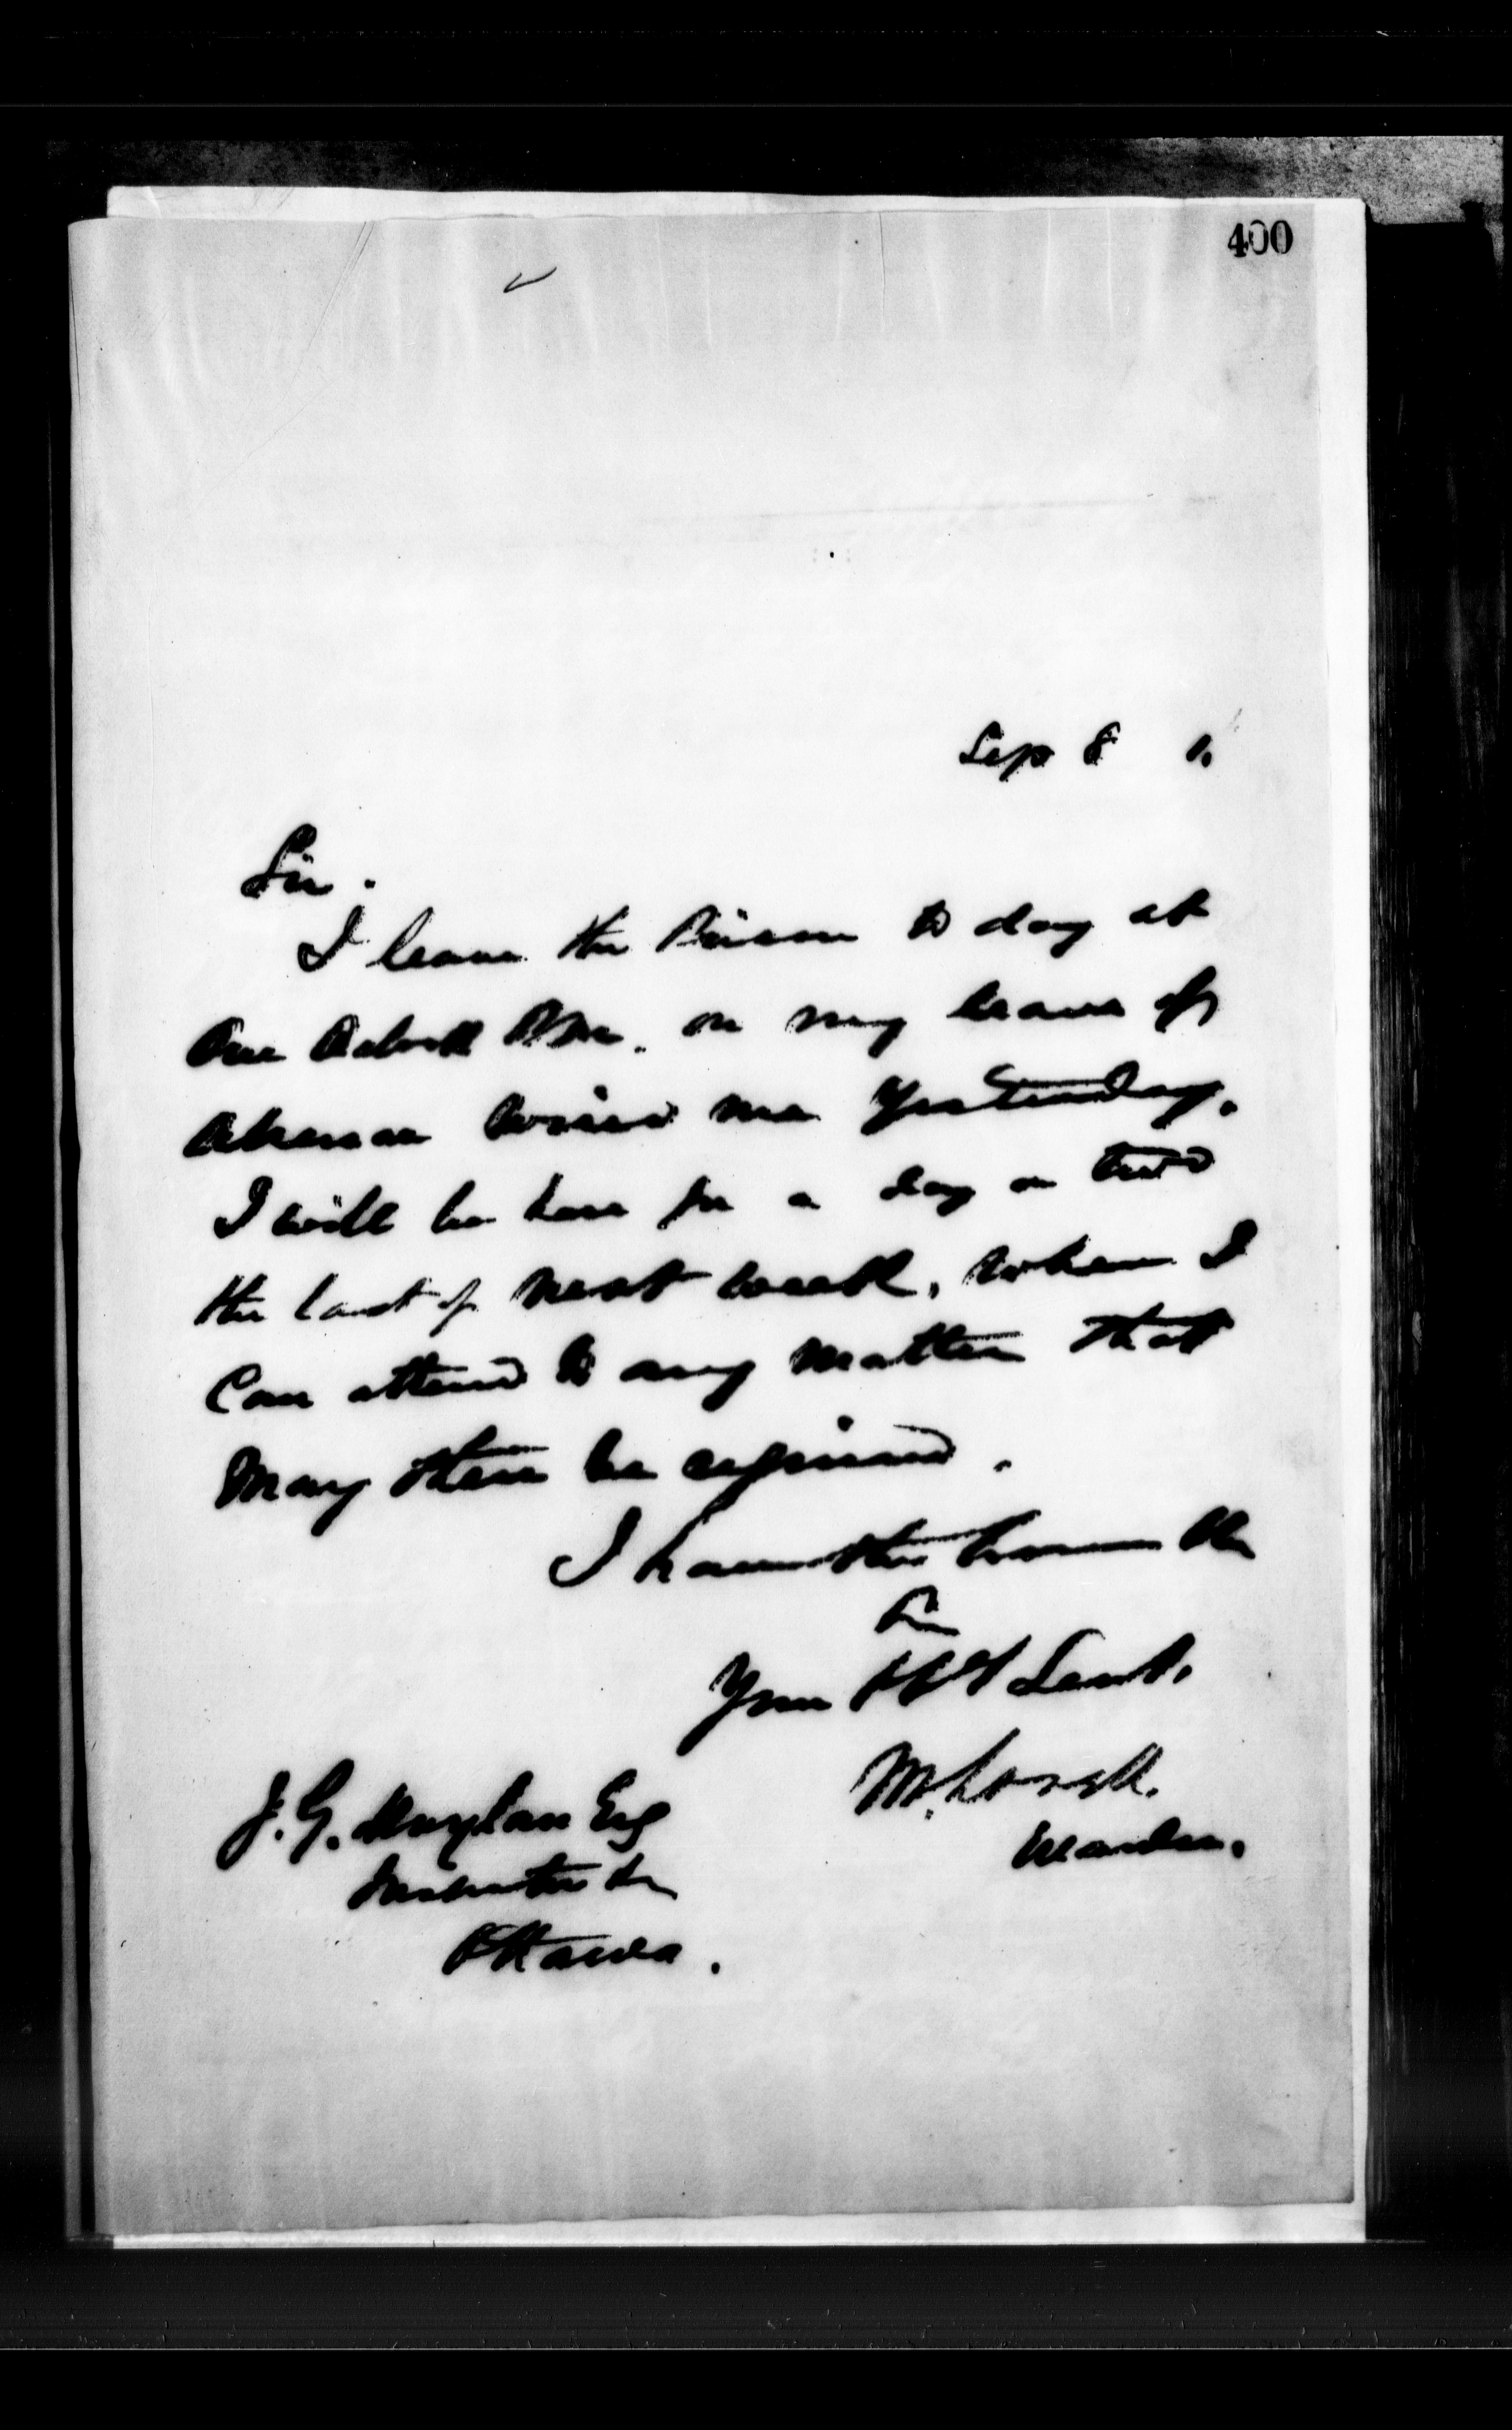 400
Sep 8 1.
Sir.
I leave the Prison to day at
One Oclock PM. on my leave of
absence wired me Yesterday.
I will be here for a day or two
the last of next week, when I
Can attend to any matter that
May then be required.
I have the honor to be
Sir
Your Obt Servt.
J. G. Moylan Esq
Warden.
Inspector &c
Ottawa.